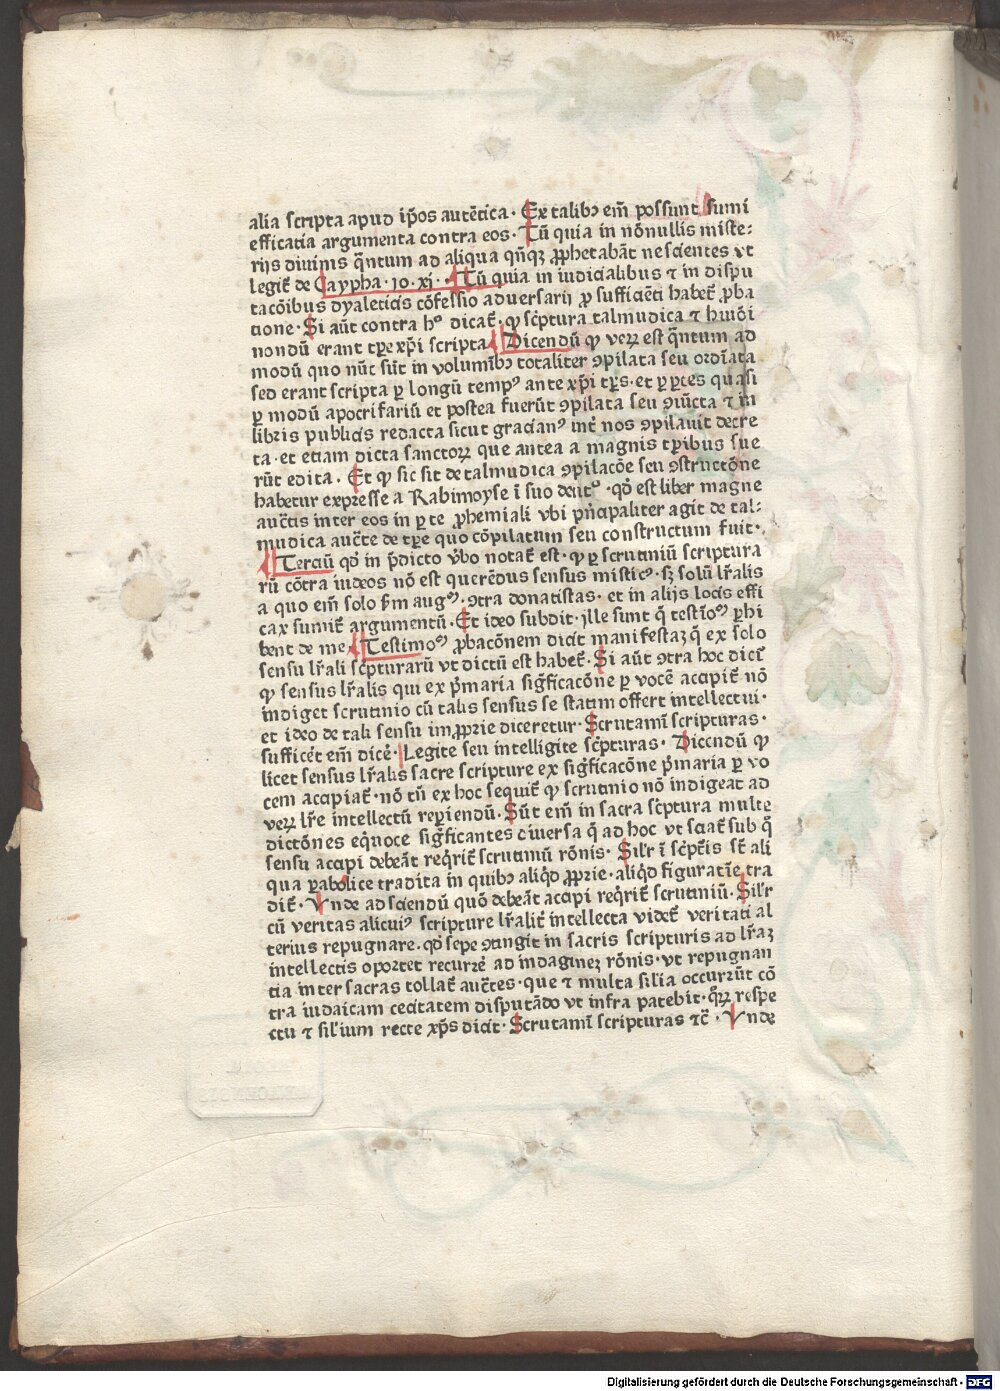 alia scripta apud ip̃os autẽtica. Ex talibꝫ em̃ possunt sumi
efficatia argumenta contra eos. Tũ quia in nõnullis miste:
rijs diuinis q̃ntum ad aliqua qñqꝫ ꝓphetabãt nescientes vt
legit̃ de Caypha. io. xj. Tũ quia in iudicialibus ⁊ in dispu
tacõibus dyaleticis cõfessio aduersarij ꝓ sufficiẽti habet̃ ꝓba
tione. Si aũt contra hᵒ dicat̃. ꝙ sc̃ptura talmudica ⁊ hmõi
nondũ erant tꝑe xp̃i scripta Dicendũ ꝙ veꝝ est q̃ntum ad
modũ quo nũc sũt in volumĩbꝫ totaliter ꝯpilata seu ordĩata
sed erant scripta ꝑ longũ tempꝰ ante xp̃i tꝑs. et ꝑ ꝑtes quasi
ꝑ modũ apocrifariũ et postea fuerũt ꝯpilata seu ꝯiũcta ⁊ in
libris publicis redacta sicut gracianꝰ int̃ nos ꝯpilauit decre
ta. et etiam dicta sanctoꝝ que antea a magnis tꝑibus sue
rũt edita. Et ꝙ sic sit de talmudica ꝯpilacõe seu ꝯstructõne
habetur expresse a Rabimoyse ĩ suo deutᵒ. qď est liber magne
auctĩs inter eos in ꝑte ꝓhemiali vbi pñcipaliter agit de tal:
mudica auctẽ de tꝑe quo cõpilatum seu constructum fuit.
Terciũ qď in p̃dicto v̾bo notat̃ est. ꝙ ꝑ scrutiniũ scriptura
rũ cõtra iudeos nõ est querẽdus sensus misticꝰ. sꝫ solũ lr̃alis
a quo em̃ solo ẜm augꝰ. ꝯtra donatistas. et in alijs locis effi
cax sumit̃ argumentũ. Et ideo subdit. jlle sunt q̃ testĩoꝰ ꝑhi
bent de me Testimoꝰ ꝓbacõnem dicit manifestaꝫ q̃ ex solo
sensu lr̃ali sc̃pturarũ vt dictũ est habet̃. Si aũt ꝯtra hoc dict̃
ꝙ sensus lr̃alis qui ex p̃maria sig̃ficacõne ꝑ vocẽ accipit̃ nõ
indiget scrutinio cũ talis sensus se statim offert intellectui.
et ideo de tali sensu imꝓprie diceretur. Scrutamĩ scripturas.
sufficẽt em̃ dicẽ. Legite seu intelligite sc̃pturas. Dicendũ ꝙ
licet sensus lr̃alis sacre scripture ex sig̃ficacõne p̃maria ꝑ vo
cem accipiat̃. nõ tñ ex hoc sequit̃ ꝙ scrutinio nõ indigeat ad
veꝝ lr̃e intellectũ reꝑiendũ. Sũt em̃ in sacra sc̃ptura multe
dictõnes eq̃noce sig̃ficantes diuersa q̃ ad hoc vt sciat̃ sub q̃
sensu accipi debeãt req̃rit̃ scrutiniũ rõnis. Sil̃r ĩ sc̃pt̃is st̃ ali
qua ꝑabolice tradita in quibꝫ aliq̃d ꝓprie. aliq̃d figuratĩe tra
dit̃. Vnde ad sciendũ quõ debeãt accipi req̃rit̃ scrutiniũ. Sil̃r
cũ veritas alicuiꝰ scripture lr̃alit̃ intellecta videt̃ veritati al
terius repugnare. qď sepe ꝯtingit in sacris scripturis ad lr̃aꝫ
intellectis oportet recurrẽ ad indagineꝫ rõnis. vt repugnan
tia inter sacras tollat̃ auctẽs. que ⁊ multa silia occurrũt cõ
tra iudaicam cecitatem disputãdo vt infra patebit. q̃ꝝ respe
ctu ⁊ sil̃ium recte xp̃s dicit. Scrutamĩ scripturas ⁊c̃. Vnde
Digitalisierung gefördert durch die Deutsche Forschungsgemeinschaft - DFG